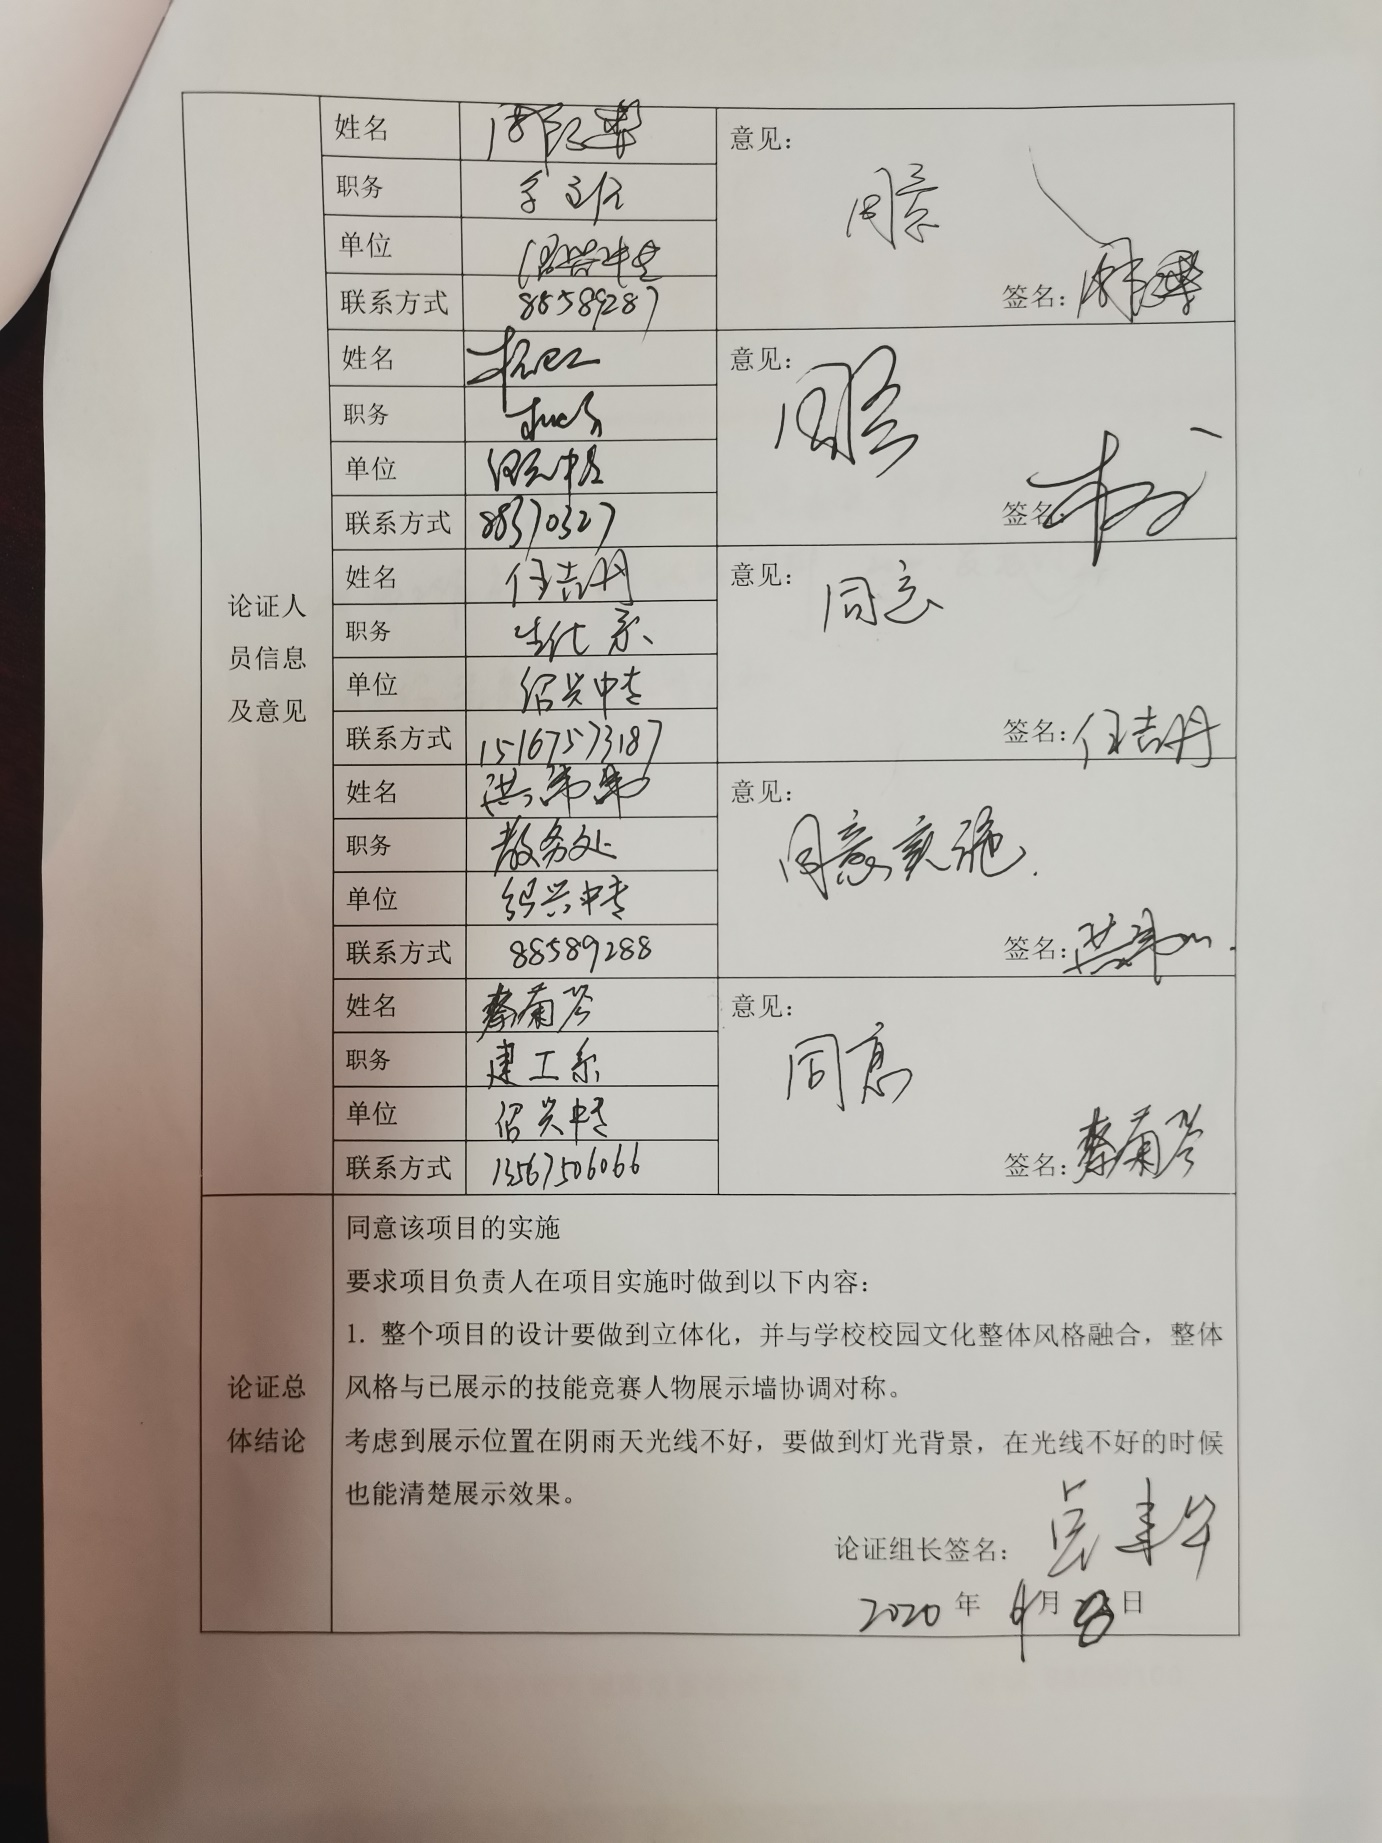 姓名
职务
单位
联系方式 88589287
意见：
同意
签名：
姓名
职务
单位
联系方式 88370327
意见：
同意
签名：
论证人
员信息
及意见
姓名 任吉丹
职务
单位 绍兴中专
联系方式 15167573187
意见：
同意
签名：任吉丹
姓名
职务 教务处
单位 绍兴中专
联系方式 88589288
意见：
同意实施.
签名：
姓名 蔡菊琴
职务 建工系
单位 绍兴中专
联系方式 13567506066
意见：
同意
签名：蔡菊琴
论证总
体结论
同意该项目的实施
要求项目负责人在项目实施时做到以下内容：
1. 整个项目的设计要做到立体化，并与学校校园文化整体风格融合，整体
风格与已展示的技能竞赛人物展示墙协调对称。
考虑到展示位置在阴雨天光线不好，要做到灯光背景，在光线不好的时候
也能清楚展示效果。
论证组长签名：
2020 年 9月 8日